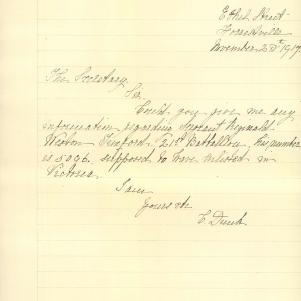 Ethel Street
Forestville
November 23rd 1917
The Secretary.
Sir
Could you give me any
information regarding Sergeant Reginald
Weston 21st Battalion, his number
is 5096. supposed to have enlisted in
Victoria.
I am
Yours etc
E.